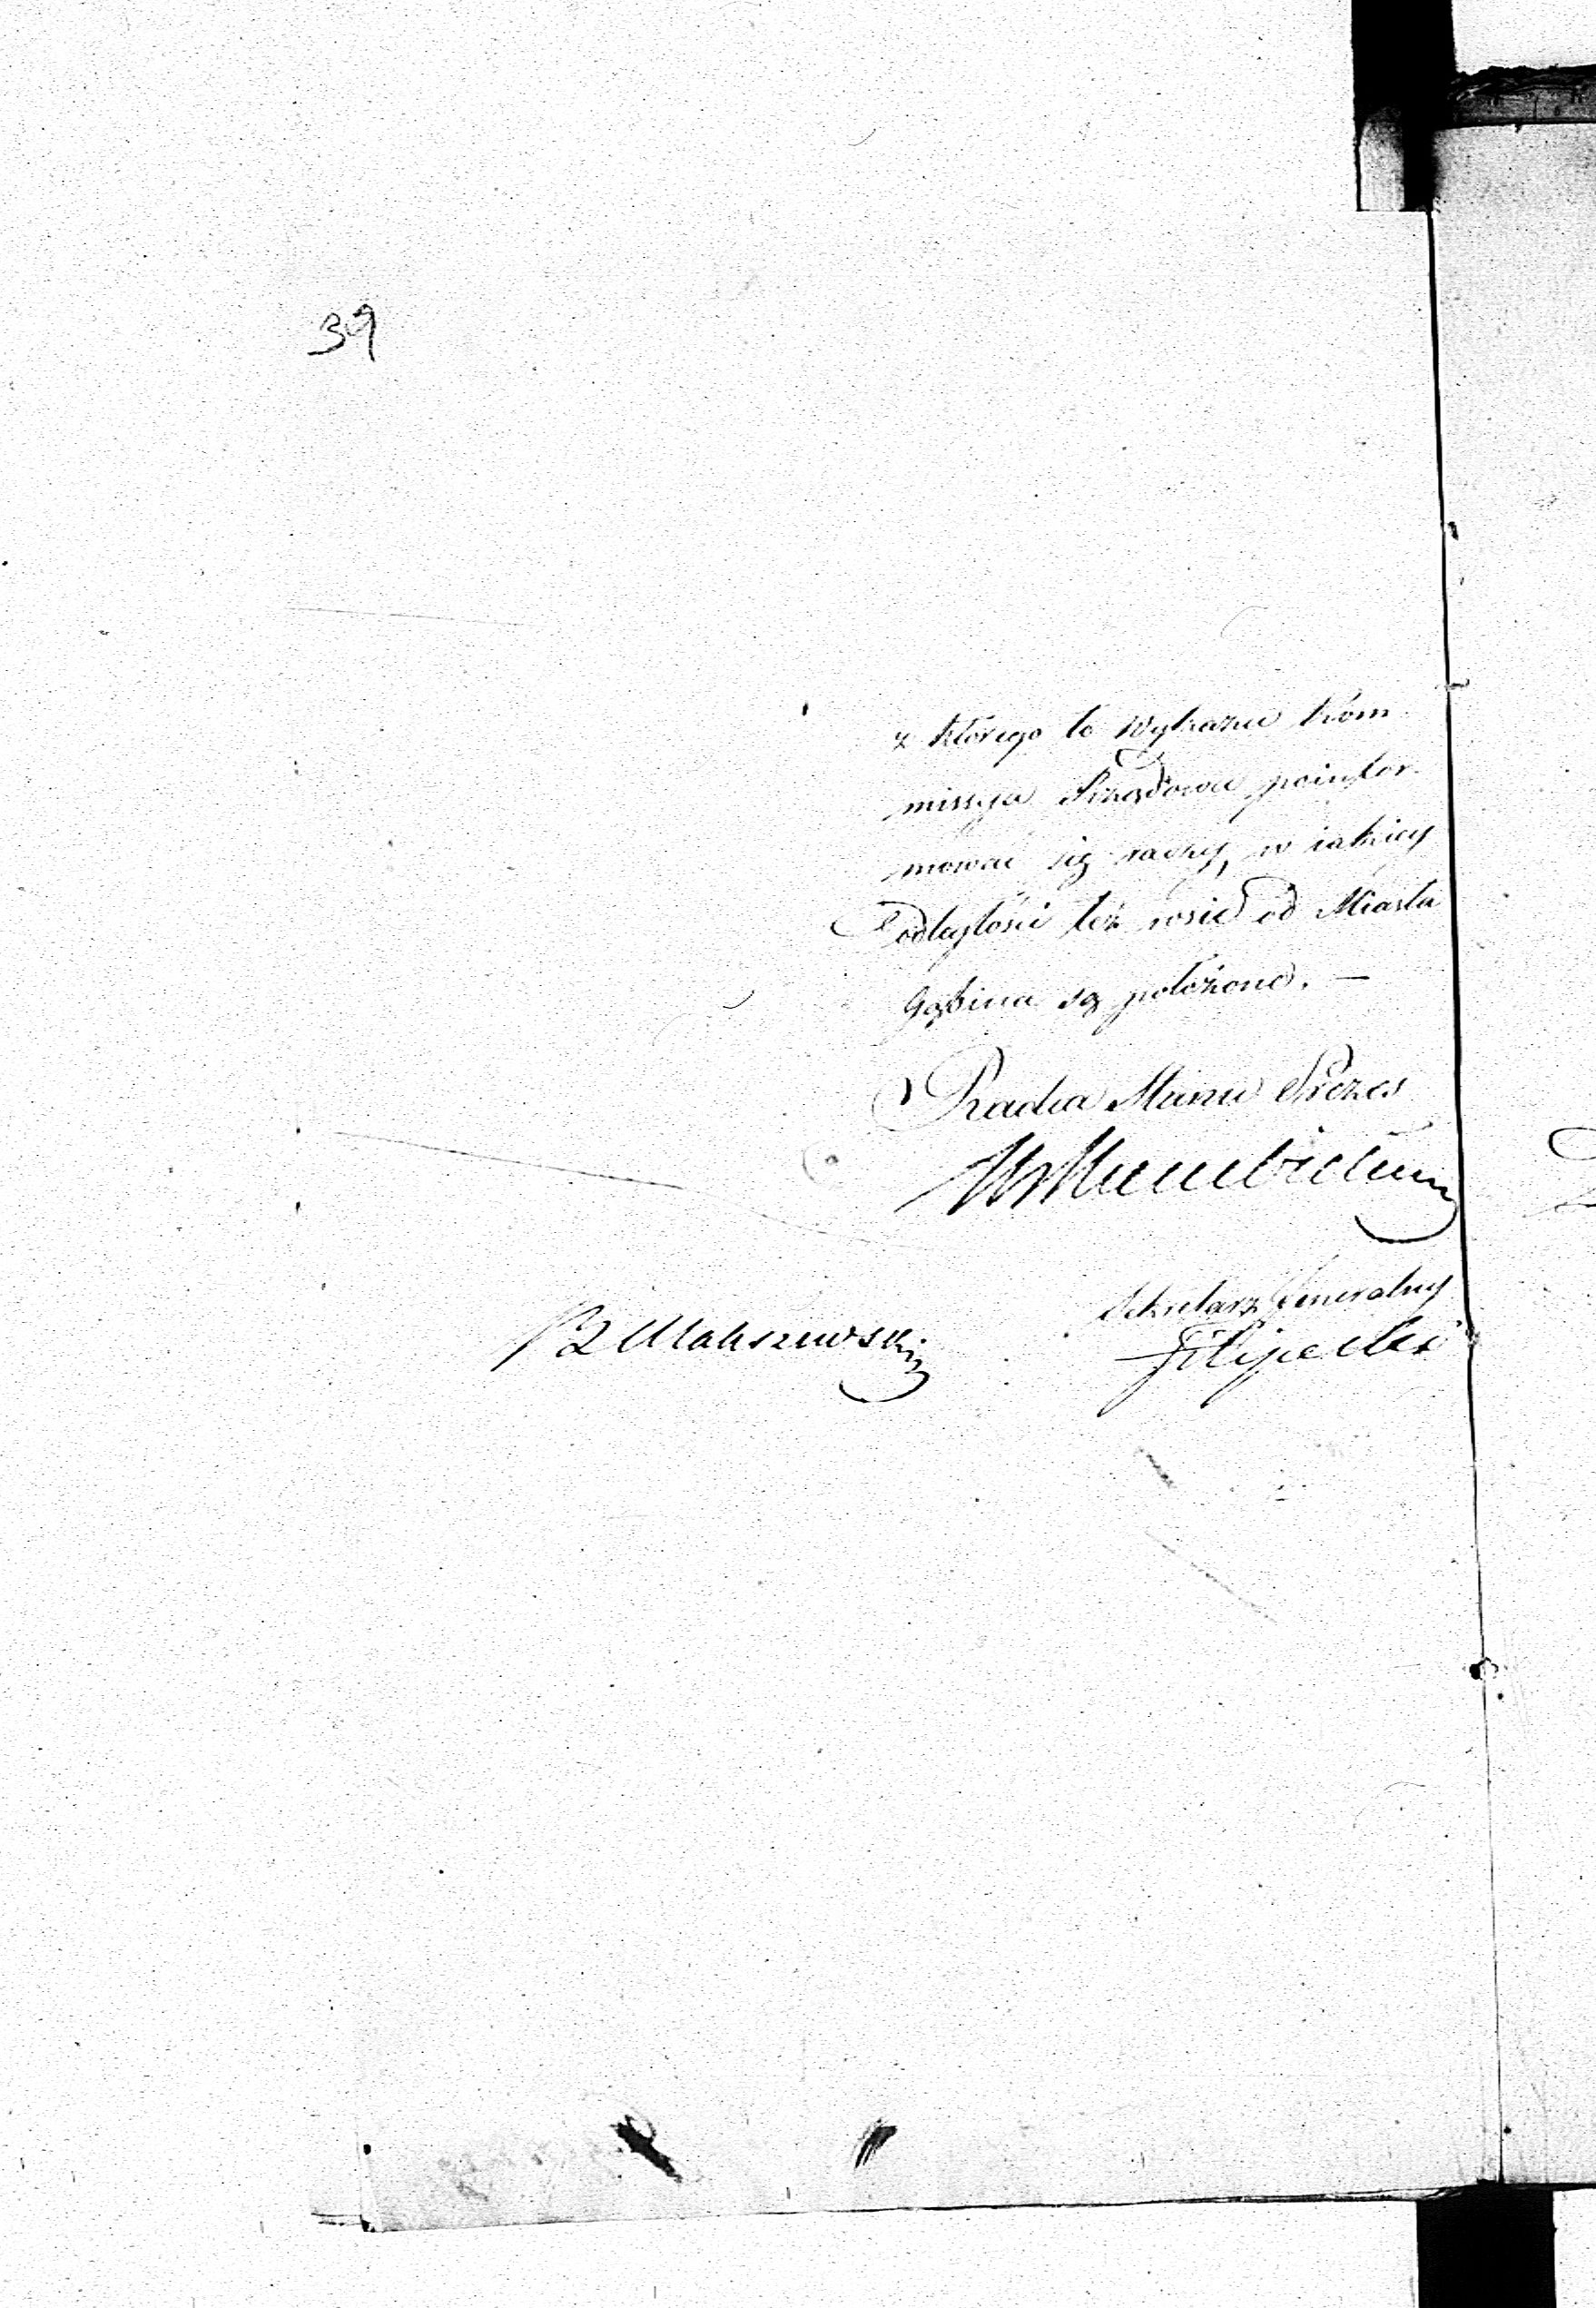 39
z którego to Wykazu Kom
missya Rządowa poinfor
mować się raczy, w iakiey
odległości też wsie od Miasta
Gąbina są położone. —
Radca Stanu Prezes
Sekretarz Generalny
Filipecki